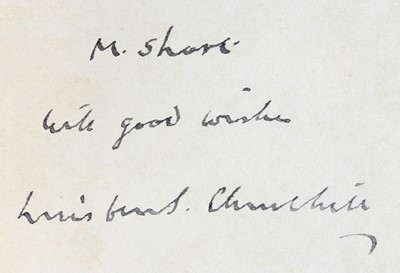 M. Short
with good wishes
Winston S. Churchill